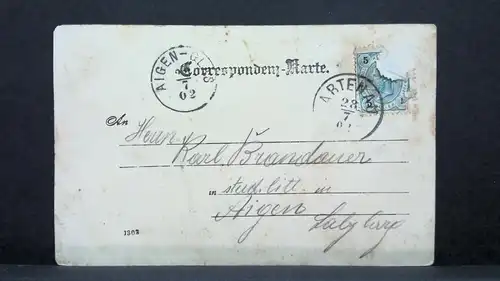 AIGEN-GLAS
7
02
5
Correspondenz-Karte.
ARTEN
23
7
An Herrn
Karl Brandauer
in stud. litt. in
Aigen
Salzburg
1302